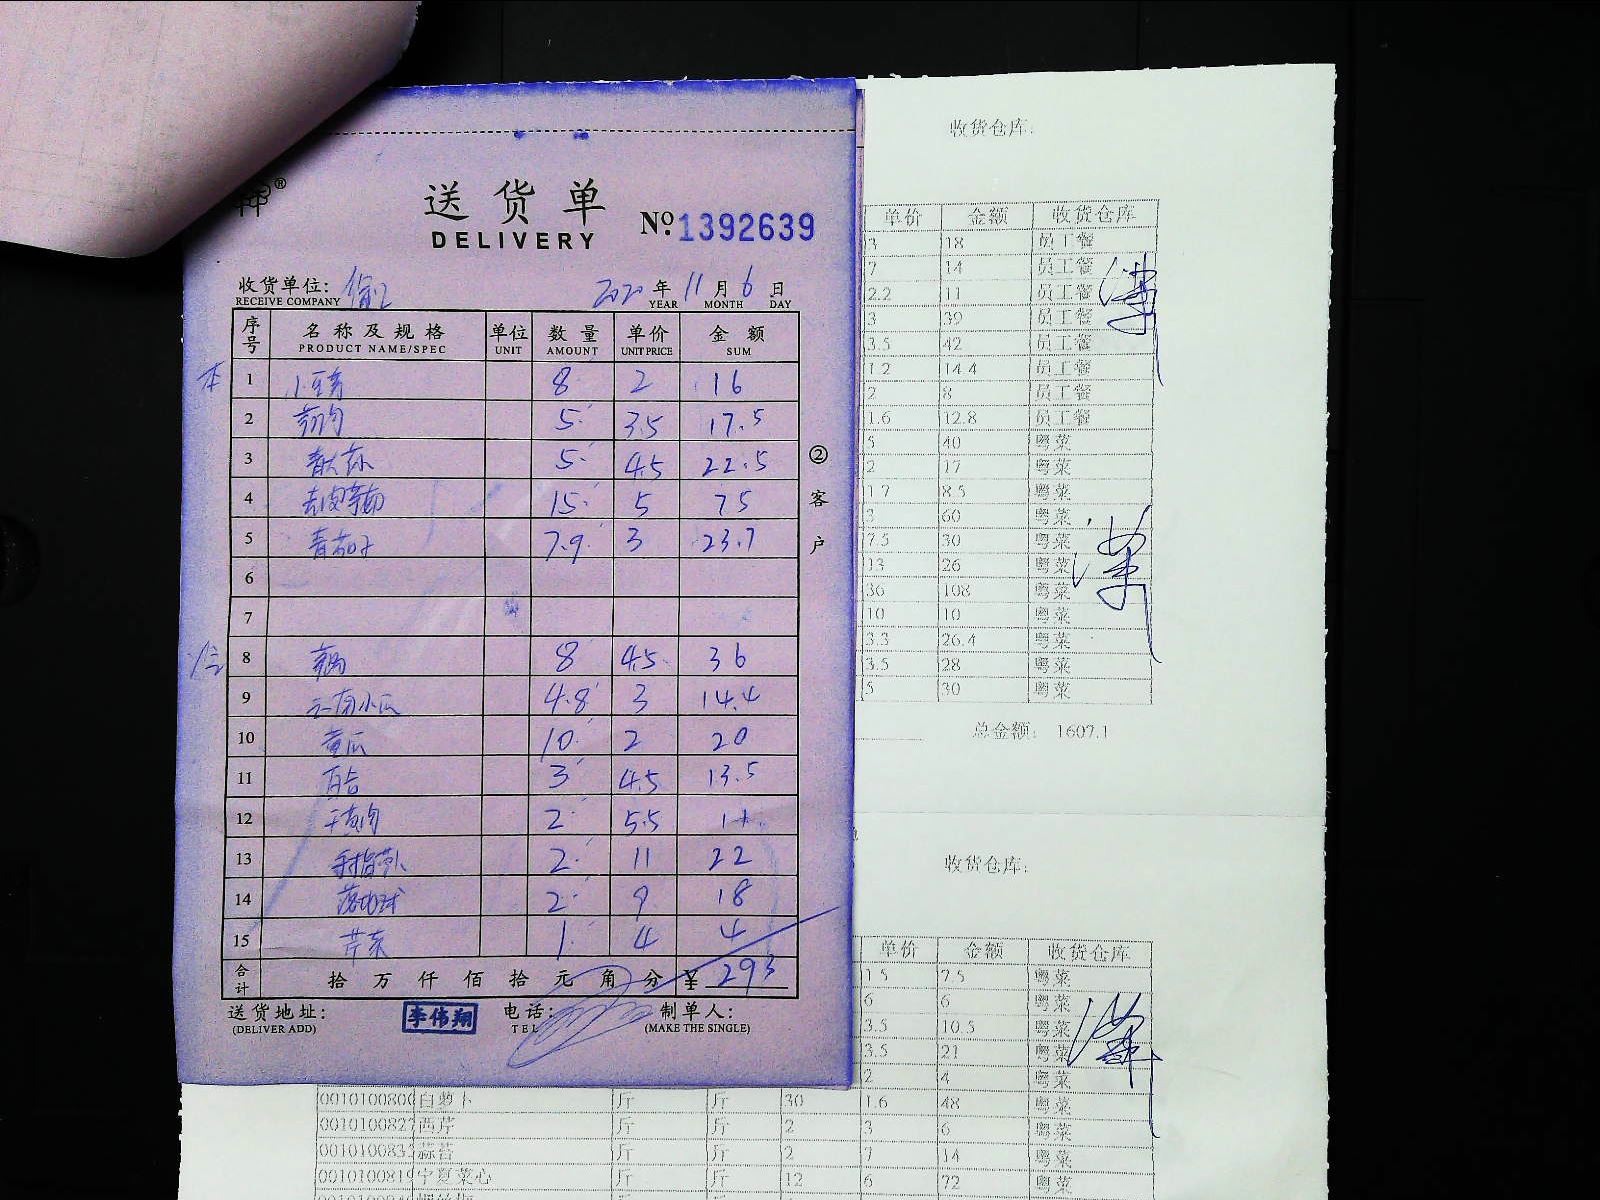 送货单
DELIVERY
№ 1392639
收货单位:
RECEIVE COMPANY
2020 年 11 月 6 日
YEAR MONTH DAY
序号 名称及规格 单位 数量 单价 金额
PRODUCT NAME/SPEC UNIT AMOUNT UNIT PRICE SUM
1 8 2 16
2 5 3.5 17.5
3 5 4.5 22.5
4 15 5 75
5 青茄子 7.9 3 23.7
6
7
8 8 4.5 36
9 云南小瓜 4.8 3 14.4
10 黄瓜 10 2 20
11 百合 3 4.5 13.5
12 2 5.5 11
13 手指萝卜 2 11 22
14 2 9 18
15 1 4 4
合计 拾 万 仟 佰 拾 元 角 分 ¥ 293
送货地址: 李伟翔 电话: 制单人:
(DELIVER ADD) TEL (MAKE THE SINGLE)
② 客户
收货仓库:
单价 金额 收货仓库
3 18 员工餐
7 14 员工餐
2.2 11 员工餐
3 39 员工餐
3.5 42 员工餐
1.2 14.4 员工餐
2 8 员工餐
1.6 12.8 员工餐
5 40 粤菜
2 17 粤菜
1.7 8.5 粤菜
3 60 粤菜
7.5 30 粤菜
13 26 粤菜
36 108 粤菜
10 10 粤菜
3.3 26.4 粤菜
3.5 28 粤菜
5 30 粤菜
总金额: 1607.1
收货仓库:
单价 金额 收货仓库
1.5 7.5 粤菜
6 6 粤菜
3.5 10.5 粤菜
3.5 21 粤菜
2 4 粤菜
0010100800 白萝卜 斤 斤 30 1.6 48 粤菜
0010100827 西芹 斤 斤 2 3 6 粤菜
001010083 蒜苔 斤 斤 2 7 14 粤菜
0010100819 宁夏菜心 斤 斤 12 6 72 粤菜